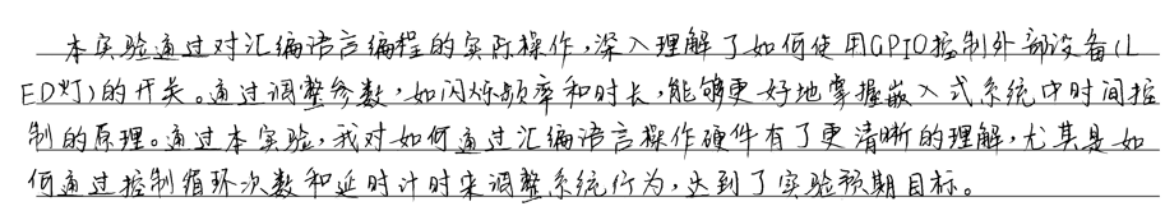 本实验通过对汇编语言编程的实际操作,深入理解了如何使用GPIO控制外部设备(L
ED灯)的开关。通过调整参数,如闪烁频率和时长,能够更好地掌握嵌入式系统中时间控
制的原理。通过本实验,我对如何通过汇编语言操作硬件有了更清晰的理解,尤其是如
何通过控制循环次数和延时计时来调整系统行为,达到了实验预期目标。